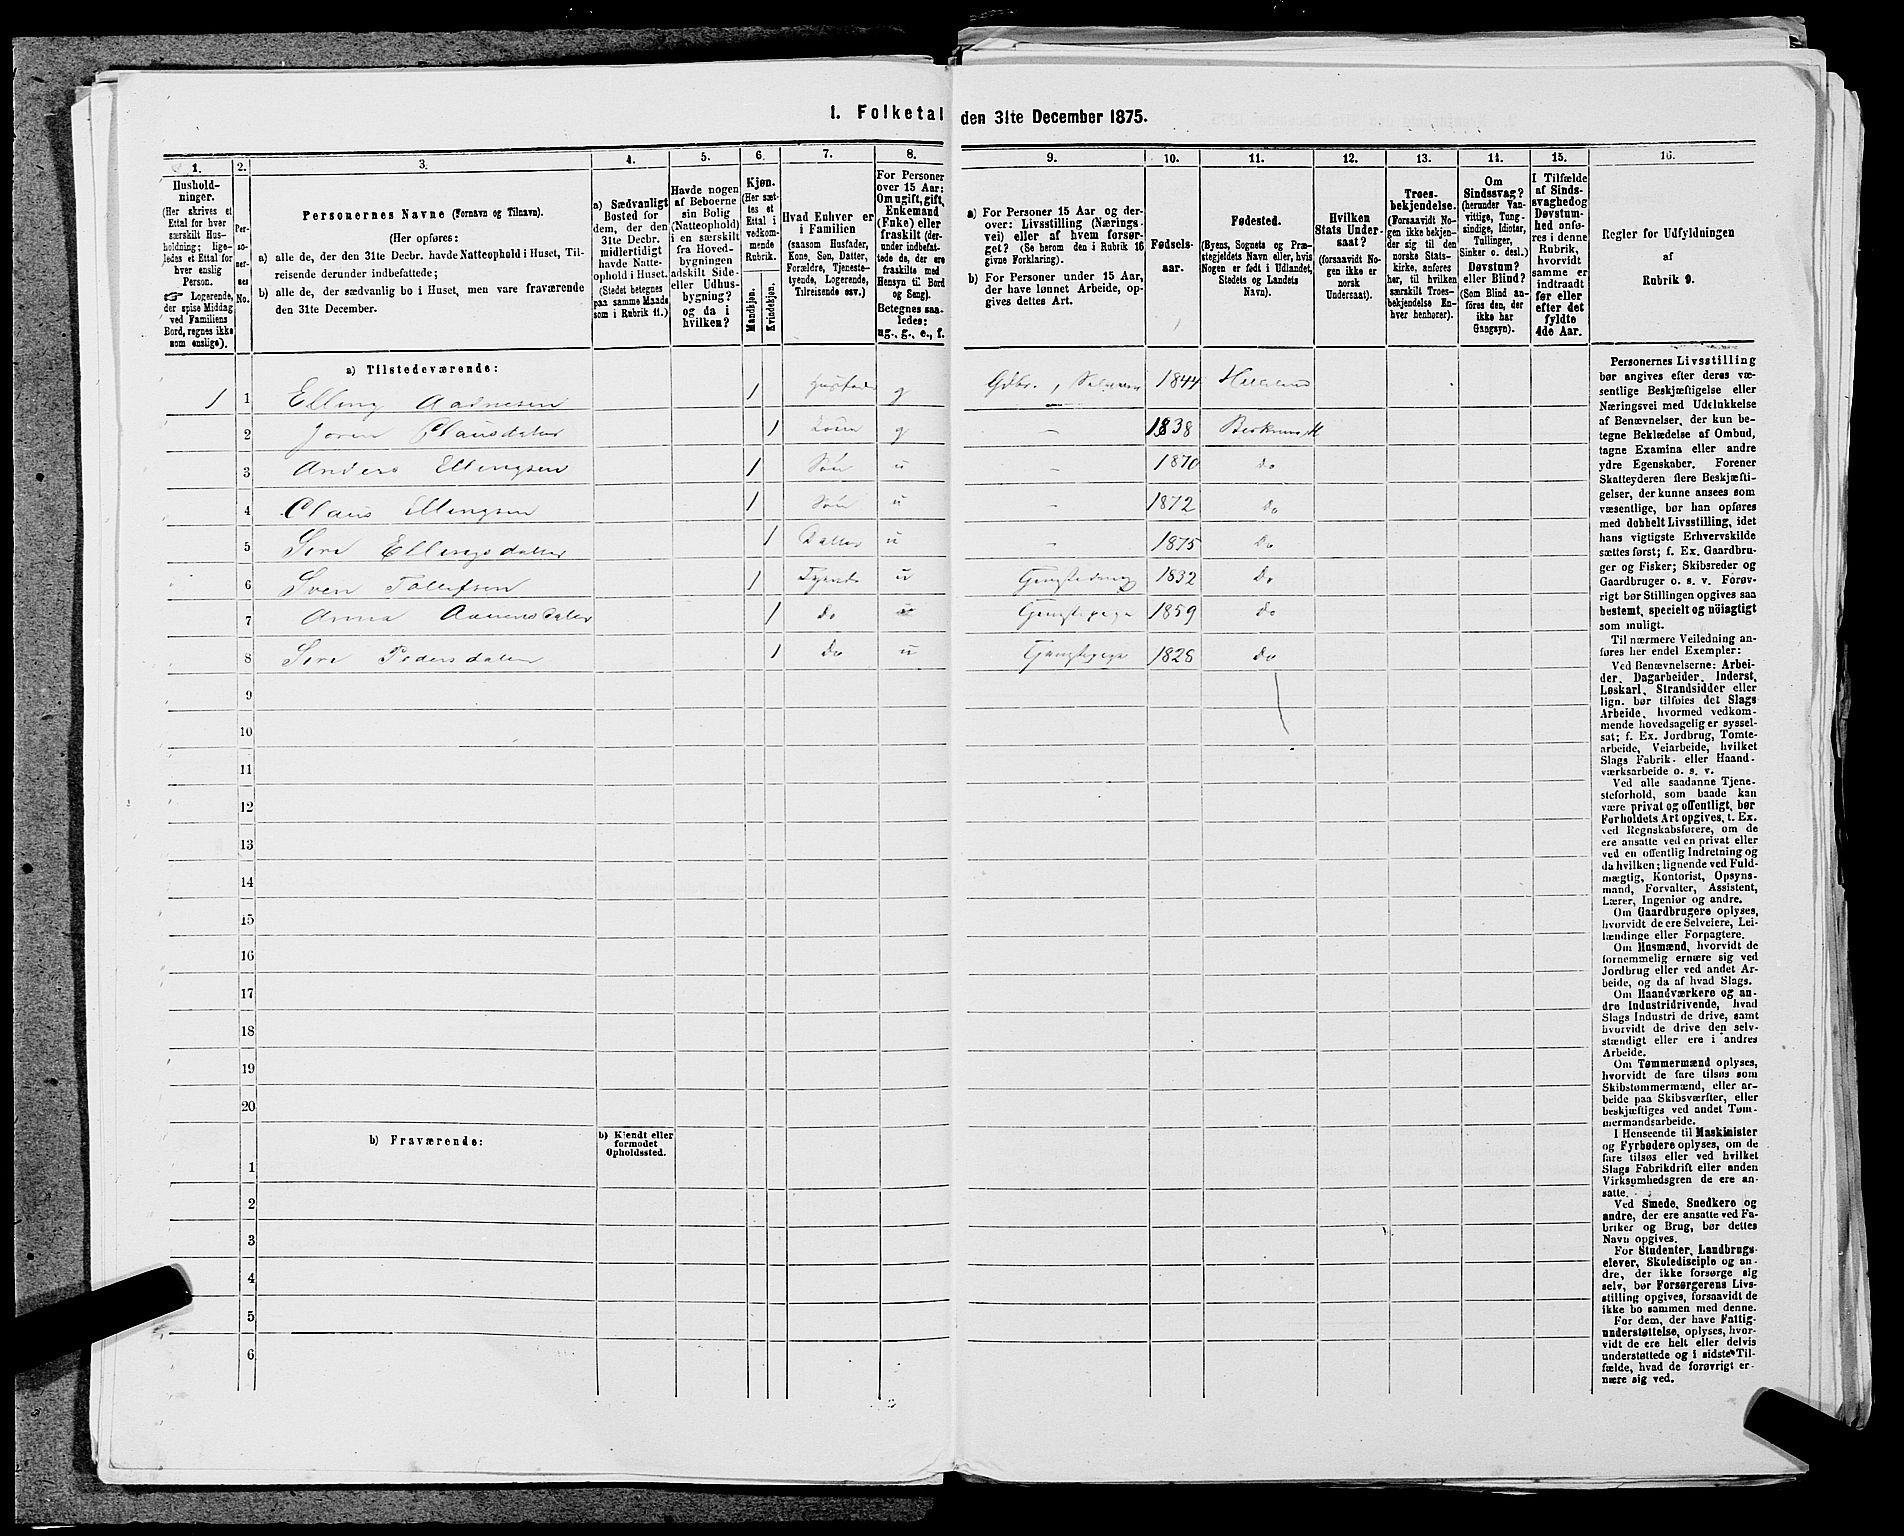 1. Folketal den 31te December 1875.
1. 2. 3. 4. 5. 6. 7. 8. 9. 10. 11. 12. 13. 14. 15. 16.
Hushold-
ninger.
(Her skrives et
Ettal for hver
særskilt Hus-
holdning; lige-
ledes et Ettal for
hver enslig
Person.
☞ Logerende,
der spise Middag
ved Familiens
Bord, regnes ikke
som enslige).
Per-
so-
ner-
nes
No.
Personernes Navne (Fornavn og Tilnavn).
(Her opføres:
a) alle de, der den 31te Decbr. havde Natteophold i Huset, Til-
reisende derunder indbefattede;
b) alle de, der sædvanlig bo i Huset, men vare fraværende
den 31te December.
a) Sædvanligt
Bosted for
dem, der den
31te Decbr.
midlertidigt
havde Natte-
ophold i Huset.
(Stedet betegnes
paa samme Maade
som i Rubrik 11.)
Havde nogen
af Beboerne
sin Bolig
(Natteophold)
i en særskilt
fra Hoved-
bygningen
adskilt Side-
eller Udhus-
bygning?
og da i
hvilken?
Kjøn.
(Her sæt-
tes et
Ettal i
vedkom-
mende
Rubrik.
Mandkjøn.
Kvindekjøn.
Hvad Enhver er
i Familien
(saasom Husfader,
Kone, Søn, Datter,
Forældre, Tjeneste-
tyende, Logerende,
Tilreisende osv.)
For Personer
over 15 Aar:
Om ugift, gift,
Enkemand
(Enke) eller
fraskilt (der-
under indbefat-
tede de, der ere
fraskilte med
Hensyn til Bord
og Seng).
Betegnes saa-
ledes:
ug., g., e., f.
a) For Personer 15 Aar og der-
over: Livsstilling (Nærings-
vei) eller af hvem forsør-
get? (Se herom den i Rubrik 16
givne Forklaring).
b) For Personer under 15 Aar,
der have lønnet Arbeide, op-
gives dettes Art.
Fødsels-
aar.
Fødested.
(Byens, Sognets og Præ-
stegjeldets Navn eller, hvis
Nogen er født i Udlandet,
Stedets og Landets
Navn).
Hvilken
Stats Under-
saat?
(forsaavidt No-
gen ikke er
norsk
Undersaat).
Troes-
bekjendelse.
(Forsaavidt No-
gen ikke bekjen-
der sig til den
norske Stats-
kirke, anføres
her, til hvilken
særskilt Troes-
bekjendelse En-
hver henhører).
Om
Sindssvag?
(herunder Van-
vittige, Tung-
sindige, Idioter,
Tullinger,
Sinker o. desl.)
Døvstum?
eller Blind?
(Som Blind an-
føres den, der
ikke har
Gangsyn).
I Tilfælde
af Sinds-
svaghed og
Døvstum-
hed anfø-
res i denne
Rubrik,
hvorvidt
samme er
indtraadt
før eller
efter det
fyldte
4de Aar.
Regler for Udfyldningen
af
Rubrik 9.
a) Tilstedeværende:
1 1 Elling Aadnesen 1 Husfader g Gdbr., Selveier 1844 Helleland
2 Joren Clausdatter 1 Kone g - 1838
3 Anders Ellingsen 1 Søn u - 1870 Do
4 Claus Ellingsen 1 Søn u - 1872 Do
5 Siri Ellingsdatter 1 Datter u - 1875 Do
6 Sven Tollefsen 1 Tyende u 1832 Do
7 Anna 1 Do u 1859 Do
8 Siri Pedersdatter 1 Do u 1828 Do
9
10
11
12
13
14
15
16
17
18
19
20
b) Fraværende:
b) Kjendt eller
formodet
Opholdssted.
1
2
3
4
5
6
Personernes Livsstilling
bør angives efter deres væ-
sentlige Beskjæftigelse eller
Næringsvei med Udelukkelse
af Benævnelser, der kun be-
tegne Beklædelse af Ombud,
tagne Examina eller andre
ydre Egenskaber. Forener
Skatteyderen flere Beskjæfti-
gelser, der kunne ansees som
væsentlige, bør han opføres
med dobbelt Livsstilling, idet
hans vigtigste Erhvervskilde
sættes først; f. Ex. Gaardbru-
ger og Fisker; Skibsreder og
Gaardbruger o. s. v. Forøv-
rigt bør Stillingen opgives saa
bestemt, specielt og nöiagtigt
som muligt.
Til nærmere Veiledning an-
føres her endel Exempler:
Ved Benævnelserne: Arbei-
der, Dagarbeider, Inderst,
Løskarl, Strandsidder eller
lign. bør tilføies det Slags
Arbeide, hvormed vedkom-
mende hovedsagelig er syssel-
sat; f. Ex. Jordbrug, Tomte-
arbeide, Veiarbeide, hvilket
Slags Fabrik- eller Haand-
værksarbeide o. s. v.
Ved alle saadanne Tjene-
steforhold, som baade kan
være privat og offentligt, bør
Forholdets Art opgives, t. Ex.
ved Regnskabsførere, om de
ere ansatte ved en privat eller
ved en offentlig Indretning og
da hvilken; lignende ved Fuld-
mægtig, Kontorist, Opsyns-
mand, Forvalter, Assistent,
Lærer, Ingeniør og andre.
Om Gaardbrugere oplyses,
hvorvidt de ere Selveiere, Lei-
lændinge eller Forpagtere.
Om Husmænd, hvorvidt de
fornemmelig ernære sig ved
Jordbrug eller ved andet Ar-
beide, og da af hvad Slags.
Om Haandværkere og an-
dre Industridrivende, hvad
Slags Industri de drive, samt
hvorvidt de drive den selv-
stændigt eller ere i andres
Arbeide.
Om Tømmermænd oplyses,
hvorvidt de fare tilsøs som
Skibstømmermænd, eller ar-
beide paa Skibsværfter, eller
beskjæftiges ved andet Tøm-
mermandsarbeide.
I Henseende til Maskinister
og Fyrbødere oplyses, om de
fare tilsøs eller ved hvilket
Slags Fabrikdrift eller anden
Virksomhedsgren de ere an-
satte.
Ved Smede, Snedkere og
andre, der ere ansatte ved Fa-
briker og Brug, bør dettes
Navn opgives.
For Studenter, Landbrugs-
elever, Skoledisciple og an-
dre, der ikke forsørge sig
selv, bør Forsørgerens Livs-
stilling opgives, forsaavidt de
ikke bo sammen med denne.
For dem, der have Fattig-
understøttelse, oplyses, hvor-
vidt de ere helt eller delvis
understøttede og i sidste Til-
fælde, hvad de forøvrigt er-
nære sig ved.